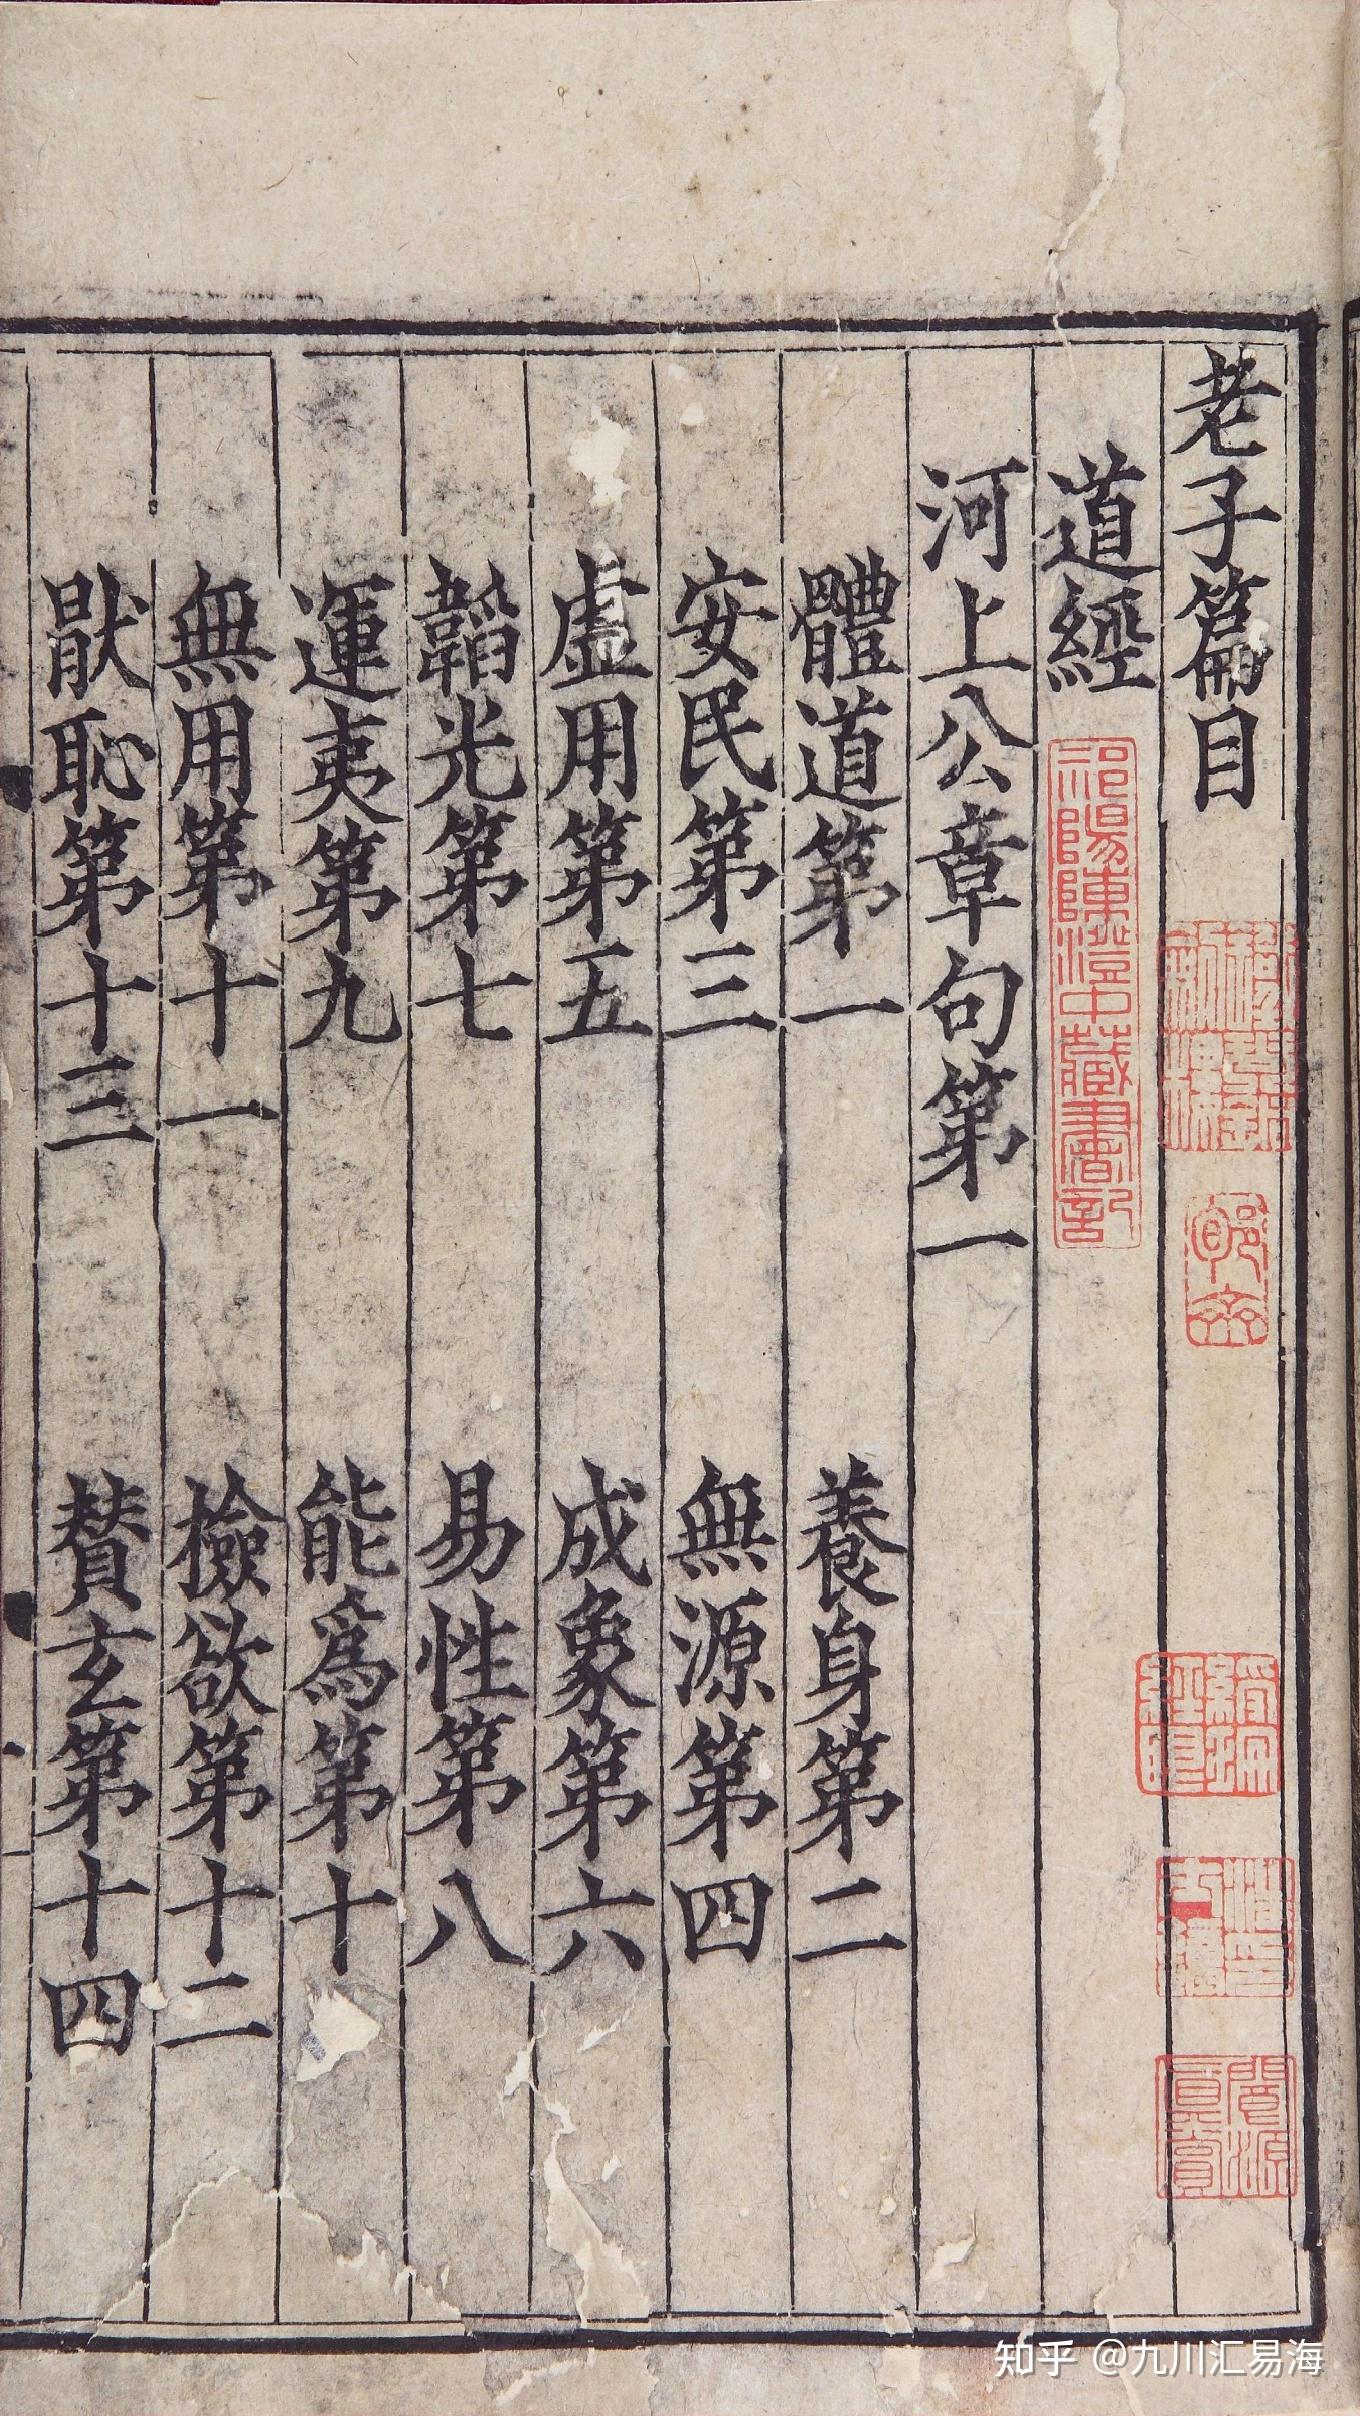 老子篇目
道經
河上公章句第一
體道第一 養身第二
安民第三 無源第四
虛用第五 成象第六
韜光第七 易性第八
運夷第九 能爲第十
無用第十一 撿欲第十二
猒恥第十三 賛玄第十四
祁陽陳澄中藏書記
知乎 @九川汇易海